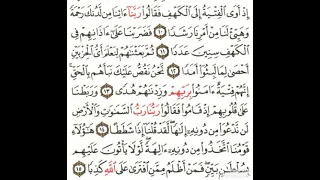 إِذْ أَوَى ٱلْفِتْيَةُ إِلَى ٱلْكَهْفِ فَقَالُوا۟ رَبَّنَآ ءَاتِنَا مِن لَّدُنكَ رَحْمَةً
وَهَيِّئْ لَنَا مِنْ أَمْرِنَا رَشَدًا ١٠ فَضَرَبْنَا عَلَىٰٓ ءَاذَانِهِمْ فِى
ٱلْكَهْفِ سِنِينَ عَدَدًا ١١ ثُمَّ بَعَثْنَٰهُمْ لِنَعْلَمَ أَىُّ ٱلْحِزْبَيْنِ
أَحْصَىٰ لِمَا لَبِثُوٓا۟ أَمَدًا ١٢ نَّحْنُ نَقُصُّ عَلَيْكَ نَبَأَهُم بِٱلْحَقِّ
إِنَّهُمْ فِتْيَةٌ ءَامَنُوا۟ بِرَبِّهِمْ وَزِدْنَٰهُمْ هُدًى ١٣ وَرَبَطْنَا
عَلَىٰ قُلُوبِهِمْ إِذْ قَامُوا۟ فَقَالُوا۟ رَبُّنَا رَبُّ ٱلسَّمَٰوَٰتِ وَٱلْأَرْضِ
لَن نَّدْعُوَا۟ مِن دُونِهِۦٓ إِلَٰهًا لَّقَدْ قُلْنَآ إِذًا شَطَطًا ١٤ هَٰٓؤُلَآءِ
قَوْمُنَا ٱتَّخَذُوا۟ مِن دُونِهِۦٓ ءَالِهَةً لَّوْلَا يَأْتُونَ عَلَيْهِم
بِسُلْطَٰنٍۭ بَيِّنٍ فَمَنْ أَظْلَمُ مِمَّنِ ٱفْتَرَىٰ عَلَى ٱللَّهِ كَذِبًا ١٥